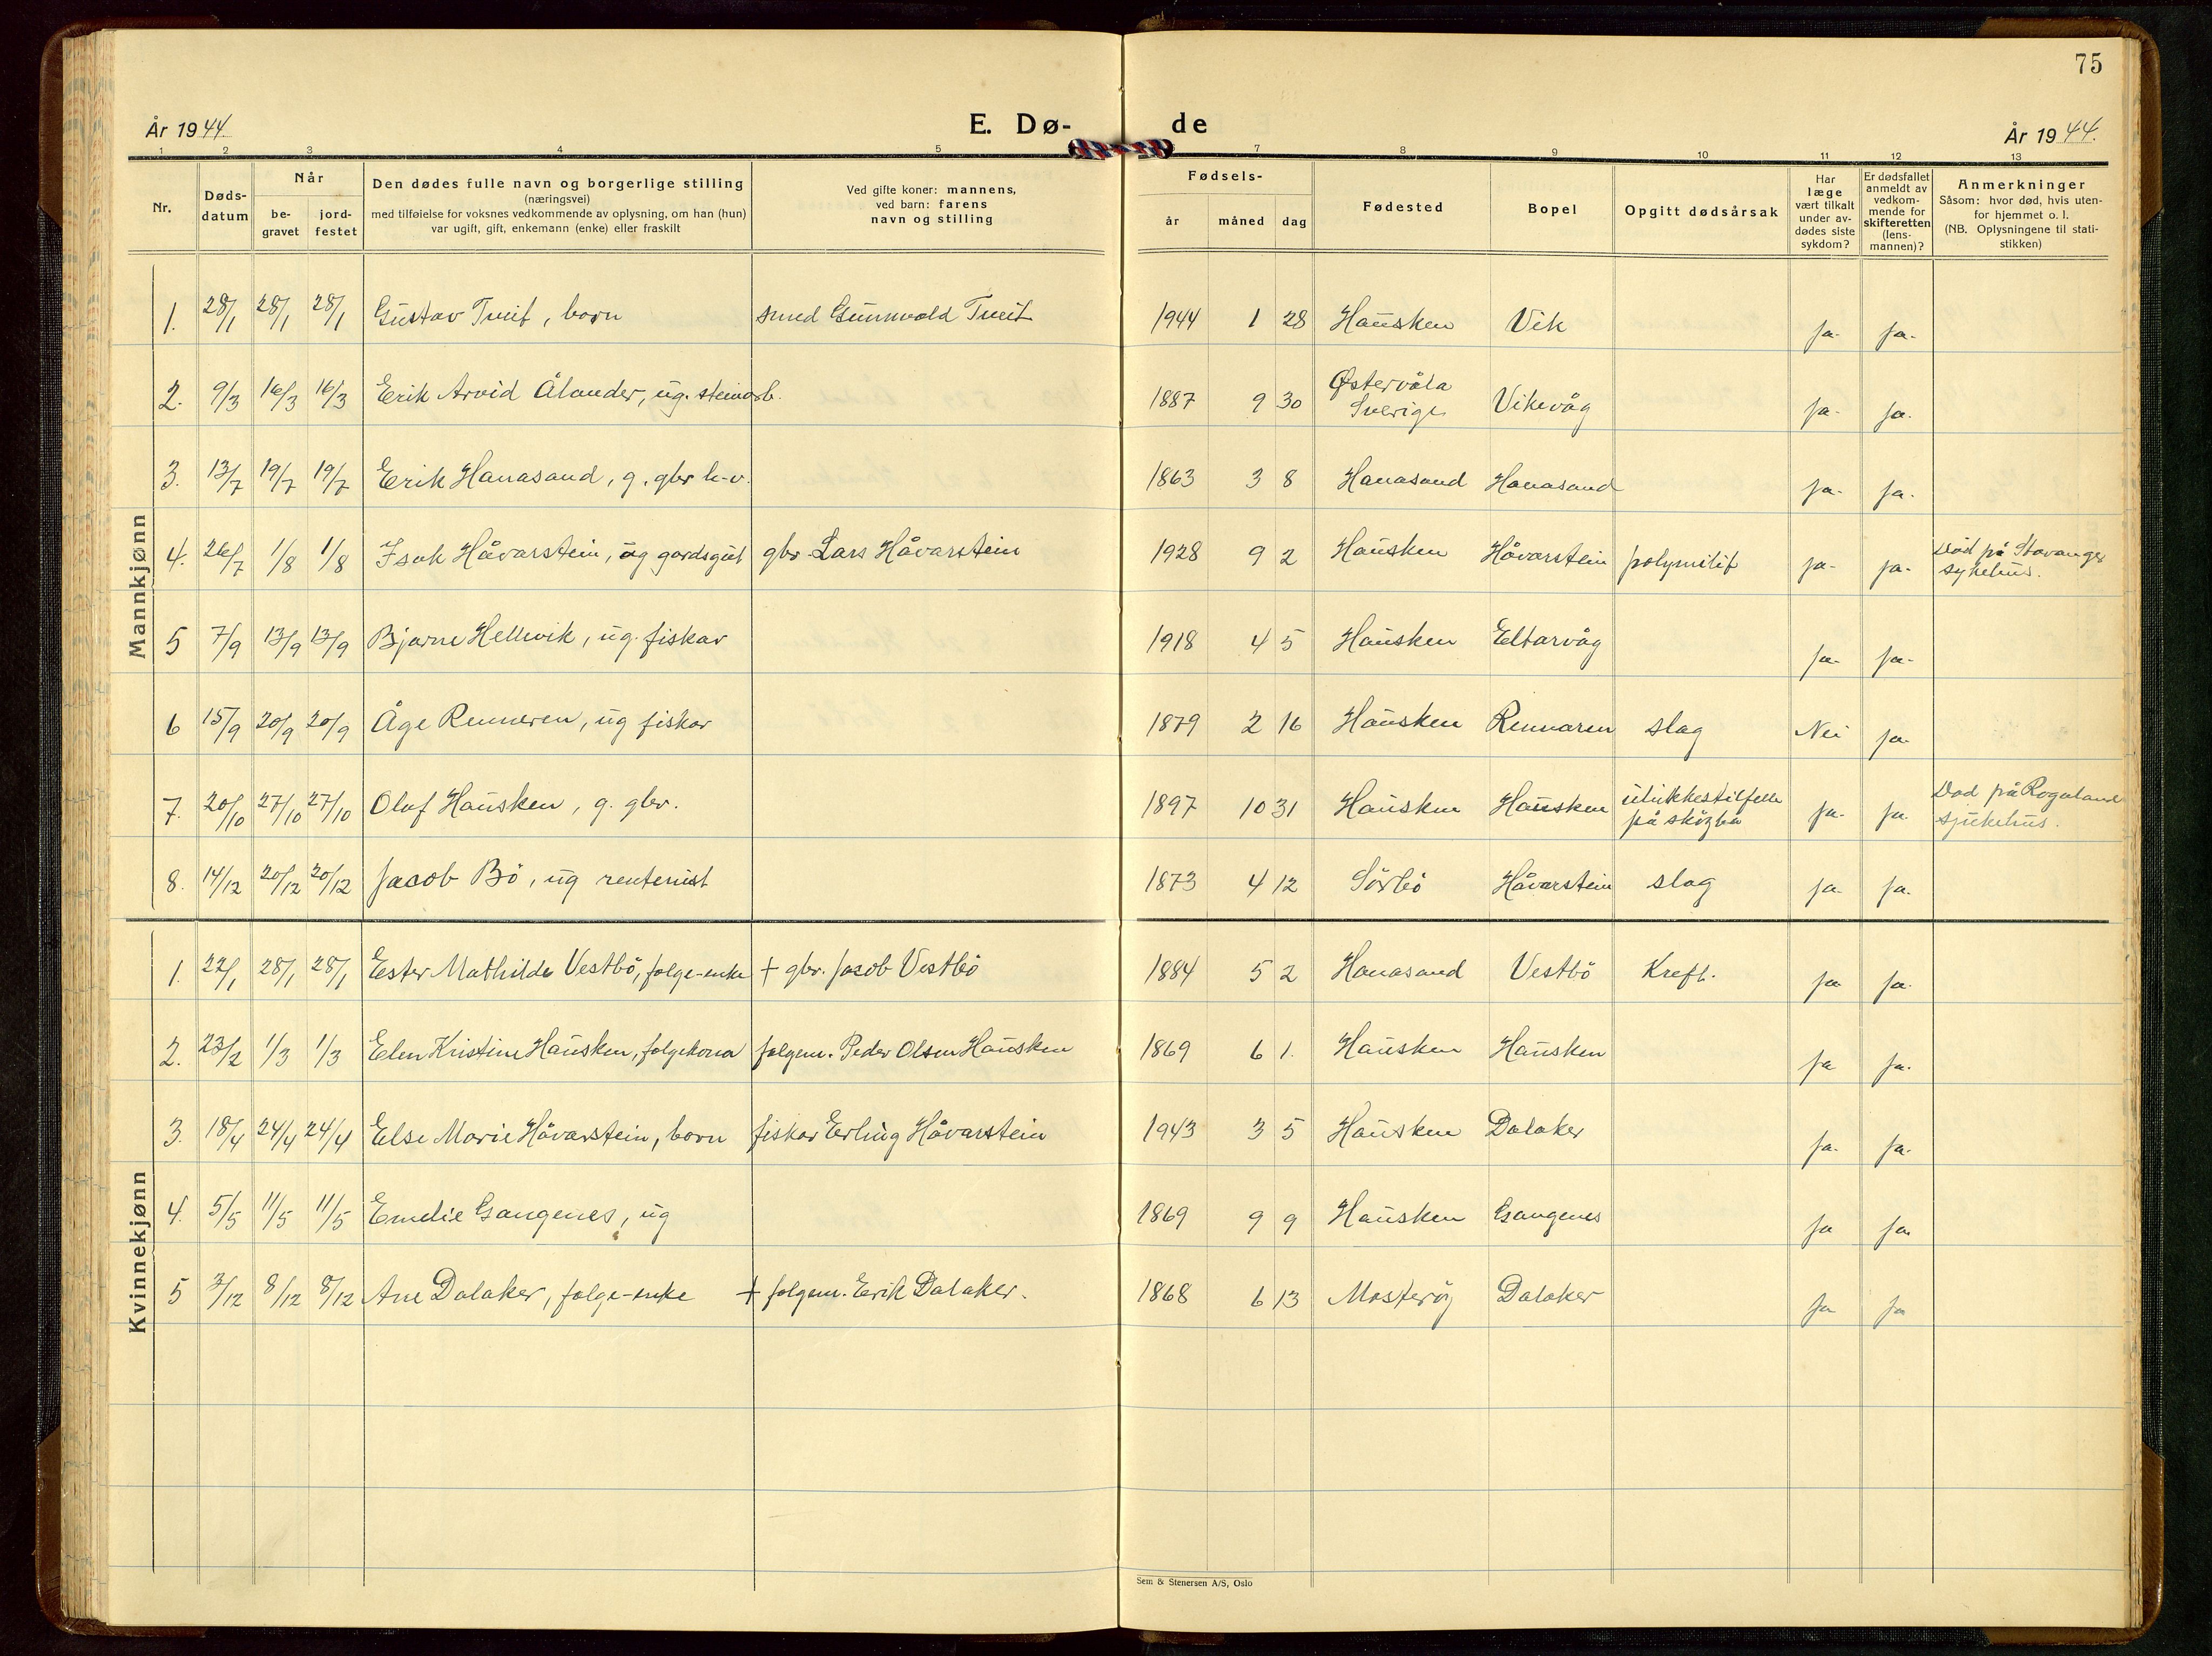 75
År 1944.
E. Dø-
de
År 1944.
1 2 3 4 5 7 8 9 10 11 12 13
Nr.
Døds-
datum
Når
be-
gravet
jord-
festet
Den dødes fulle navn og borgerlige stilling
(næringsvei)
med tilføielse for voksnes vedkommende av oplysning, om han (hun)
var ugift, gift, enkemann (enke) eller fraskilt
Ved gifte koner: mannens,
ved barn: farens
navn og stilling
Fødsels-
år måned dag
Fødested
Bopel
Opgitt dødsårsak
Har
læge
vært tilkalt
under av-
dødes siste
sykdom?
Er dødsfallet
anmeldt av
vedkom-
mende for
skifteretten
(lens-
mannen)?
Anmerkninger
Såsom: hvor død, hvis uten-
for hjemmet o. l.
(NB. Oplysningene til stati-
stikken)
Mannkjønn
1. 28/1 28/1 28/1 Gustav Tveit, born smed Gunnvald Tveit 1944 1 28 Hausken Vik ja- ja-
2. 9/3 16/3 16/3 Erik Arvid Ålander, ug. steinarb. 1887 9 30 Østervåla
Sverige Vikevåg ja- ja.
3. 13/7 19/7 19/7 Erik Hanasand, g. gbr k-v. 1863 3 8 Hanasand Hanasand ja- ja-
4. 26/7 1/8 1/8 Isak Håvarstein, ug gardsgut gbr. Lars Håvarstein 1928 9 2 Hausken Håvarstein polymitif ja- ja- Död på Stavanger
sykehus.
5 7/9 13/9 13/9 Bjarne Hellevik, ug. fiskar 1918 4 5 Hausken Eltarvåg ja- ja-
6 15/9 20/9 20/9 Åge Renneren, ug fiskar 1879 2 16 Hausken Rennaren slag Nei ja-
7. 20/10 27/10 27/10 Olaf Hausken, g. gbr. 1897 10 31 Hausken Hausken ulukkestilfelle
på ja- ja Död på Rogaland
sjukehus.
8. 14/12 20/12 20/12 Jacob Bö, ug rentenist 1873 4 12 Sörbö Håvarstein slag ja- ja.
Kvinnekjønn
1. 22/1 28/1 28/1 Ester Mathilde Vestbö, folge-enke + gbr. Jacob Vestbö 1884 5 2 Hanasand Vestbö Kreft. ja ja.
2. 23/2 1/3 1/3 Elen Kristine Hausken, folgekona folgem. Peder Olsen Hausken 1869 6 1. Hausken Hausken ja ja.
3. 18/4 24/4 24/4 Else Marie Håvarstein, born fiskar Erling Håvarstein 1943 3 5 Hausken Dalaker ja- ja-
4. 5/5 11/5 11/5 Emelie Gangenes, ug 1869 9 9 Hausken Gangenes ja ja.
5 3/12 8/12 8/12 Ane Dalaker, folge-enke + folgem. Erik Dalaker. 1868 6 13 Mosteröy Dalaker ja ja
Sem & Stenersen A/S, Oslo